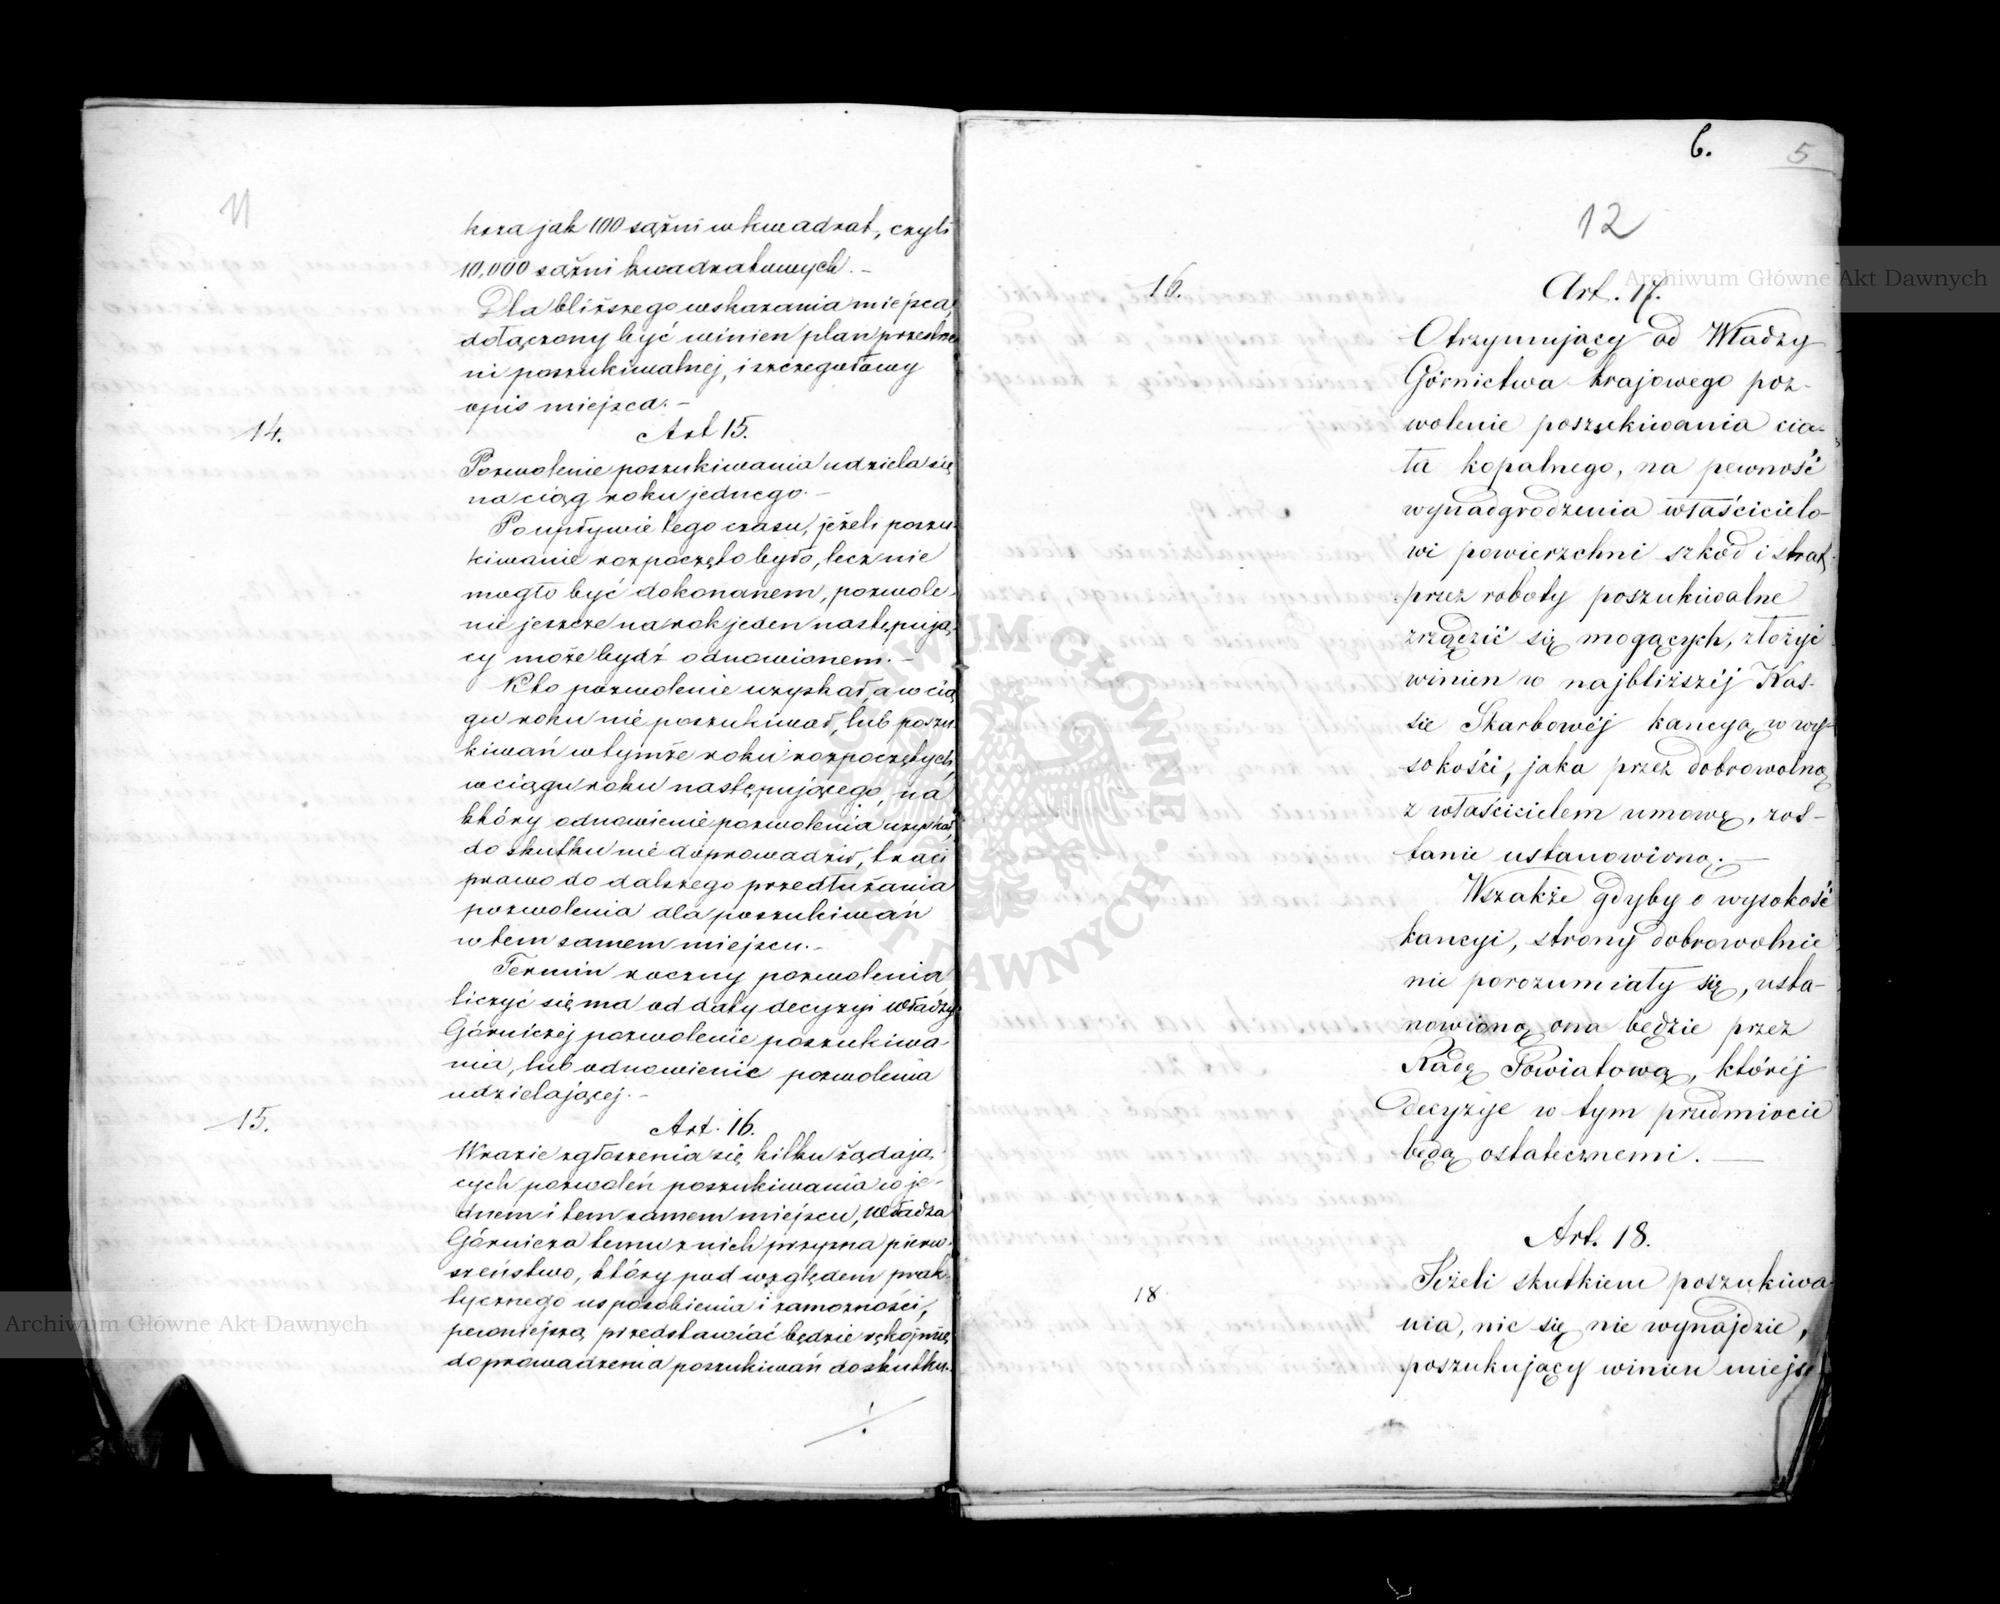 11
ksza jak 100 sążni w kwadrat, czyli
10,000 sążni kwadratowych. –
Dla bliższego wskazania miejsca,
dołączony być winien plan przestrze
ni poszukiwalnej, i szczegółowy
opis miejsca. –
14.
Art 15.
Pozwolenie poszukiwania udziela się
na ciąg roku jednego. –
Po upływie tego czasu, jeżeli poszu-
kiwanie rozpoczęto było, lecz nie
mogło być dokonanem, pozwole-
nie jeszcze na rok jeden następują-
cy może bydź odnowionem. –
Kto pozwolenie uzyskał, a w cią
gu roku nie poszukiwał, lub poszu
kiwań w tymże roku rozpoczętych,
w ciągu roku następującego, na
który odnowienie pozwolenia uzyskał,
do skutku nie doprowadził, traci
prawo do dalszego przedłużania
pozwolenia dla poszukiwań
w tem samem miejscu. –
Termin roczny pozwolenia
liczyć się ma od daty decyzyi Władzy
Górniczej pozwolenie poszukiwa
nia, lub odnowienie pozwolenia
udzielającej. –
15.
Art. 16.
W razie zgłoszenia się kilku żądają-
cych pozwoleń poszukiwania w je-
dnem i tem samem miejscu, Władza
Górnicza temu z nich przyzna pierw-
szeństwo, który pod względem prak-
tycznego usposobienia i zamożności,
pewniejszą przedstawiać będzie rękojmię
doprowadzenia poszukiwań do skutku.
6.
5
12
16.
Art. 17.
Otrzymujący od Władzy
Górnictwa krajowego poz-
wolenie poszukiwania cia-
ła kopalnego, na pewność
wynadgrodzenia właścicielo-
wi powierzchni szkód i strat,
przez roboty poszukiwalne
zrządzić się mogących, złożyć
winien w najbliższéj Kas-
sie Skarbowéj kaucyą w wy-
sokości, jaka przez dobrowolną
z właścicielem umowę, zos-
tanie ustanowioną. –
Wszakże gdyby o wysokość
kaucyi, strony dobrowolnie
nie porozumiały się, usta-
nowioną ona będzie przez
Radę Powiatową, któréj
decyzye w tym przedmiocie
będą ostatecznemi. –
Art. 18.
18
Jeżeli skutkiem poszukiwa
nia, nic się nie wynajdzie,
poszukujący winien miejsc
Archiwum Główne Akt Dawnych
Archiwum Główne Akt Dawnych
ARCHIWUM GŁÓWNE AKT DAWNYCH